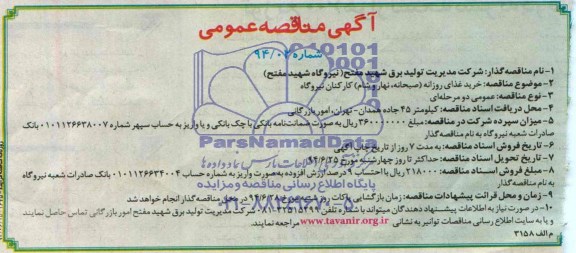 آگهی مناقصه عمومی
شماره ۹۴/۰۲
۱- نام مناقصه گذار: شرکت مدیریت تولید برق شهید مفتح (نیروگاه شهید مفتح)
۲- موضوع مناقصه: خرید غذای روزانه (صبحانه، نهار و شام) کارکنان نیروگاه
۳- نوع مناقصه: عمومی دو مرحله‌ای
۴- محل دریافت اسناد مناقصه: کیلومتر ۴۵ جاده همدان - تهران، امور بازرگانی
۵- میزان سپرده شرکت در مناقصه: مبلغ ۳۶۰۰۰۰۰۰۰ ریال به صورت ضمانت‌نامه بانکی یا چک بانکی و یا واریز به حساب سپهر شماره ۰۱۰۱۱۲۶۶۳۸۰۰۷ بانک
صادرات شعبه نیروگاه به نام مناقصه گذار
۶- تاریخ فروش اسناد مناقصه: به مدت ۷ روز از تاریخ چاپ آگهی
۷- تاریخ تحویل اسناد مناقصه: حداکثر تا روز چهارشنبه مورخ ۹۴/۶/۲۵
۸- مبلغ فروش اسناد مناقصه: ۲۱۸۰۰۰ ریال با احتساب ۹ درصد ارزش افزوده به‌صورت واریز به شماره حساب ۰۱۰۱۱۲۶۶۳۴۰۰۴ بانک صادرات شعبه نیروگاه
به نام مناقصه گذار
۹- زمان و محل قرائت پیشنهادات مناقصه: زمان بازگشایی پاکات روز در محل مناقصه گذار انجام خواهد شد
۱۰- در صورت نیاز به اطلاعات پیشنهاد دهندگان میتوانند با شماره تلفن شرکت مدیریت تولید برق شهید مفتح امور بازرگانی تماس حاصل نمایند
و یا به سایت اطلاع رسانی مناقصات توانیر به نشانی www.tavanir.org.ir مراجعه نمایند.
م الف ۳۱۵۸
ParsNamadData
پایگاه اطلاع رسانی مناقصه و مزایده